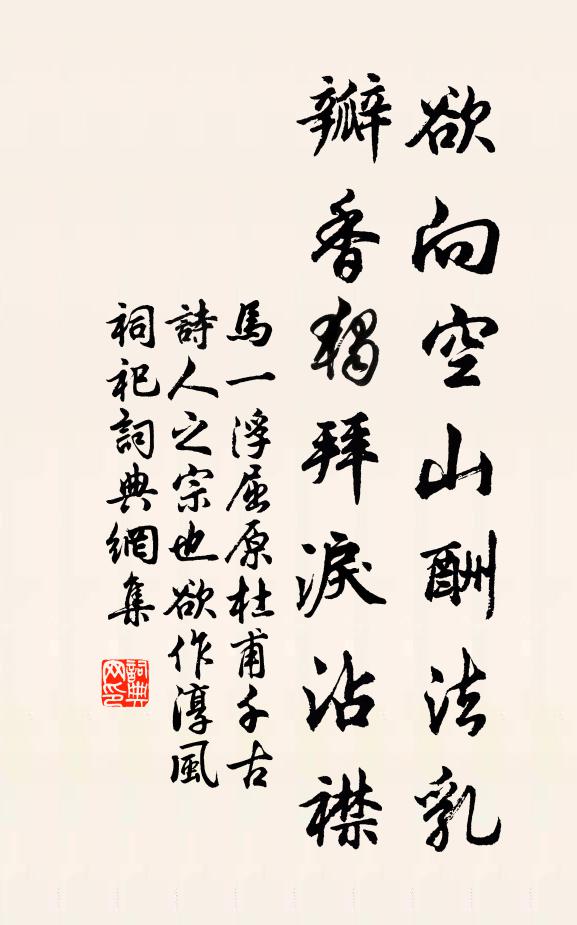 欲向空山酬法乳
瓣香獨拜淚沾襟
馬一浮屈原杜甫千古
詩人之宗也欲作淳風
祠祀詞典網集
詞典網印